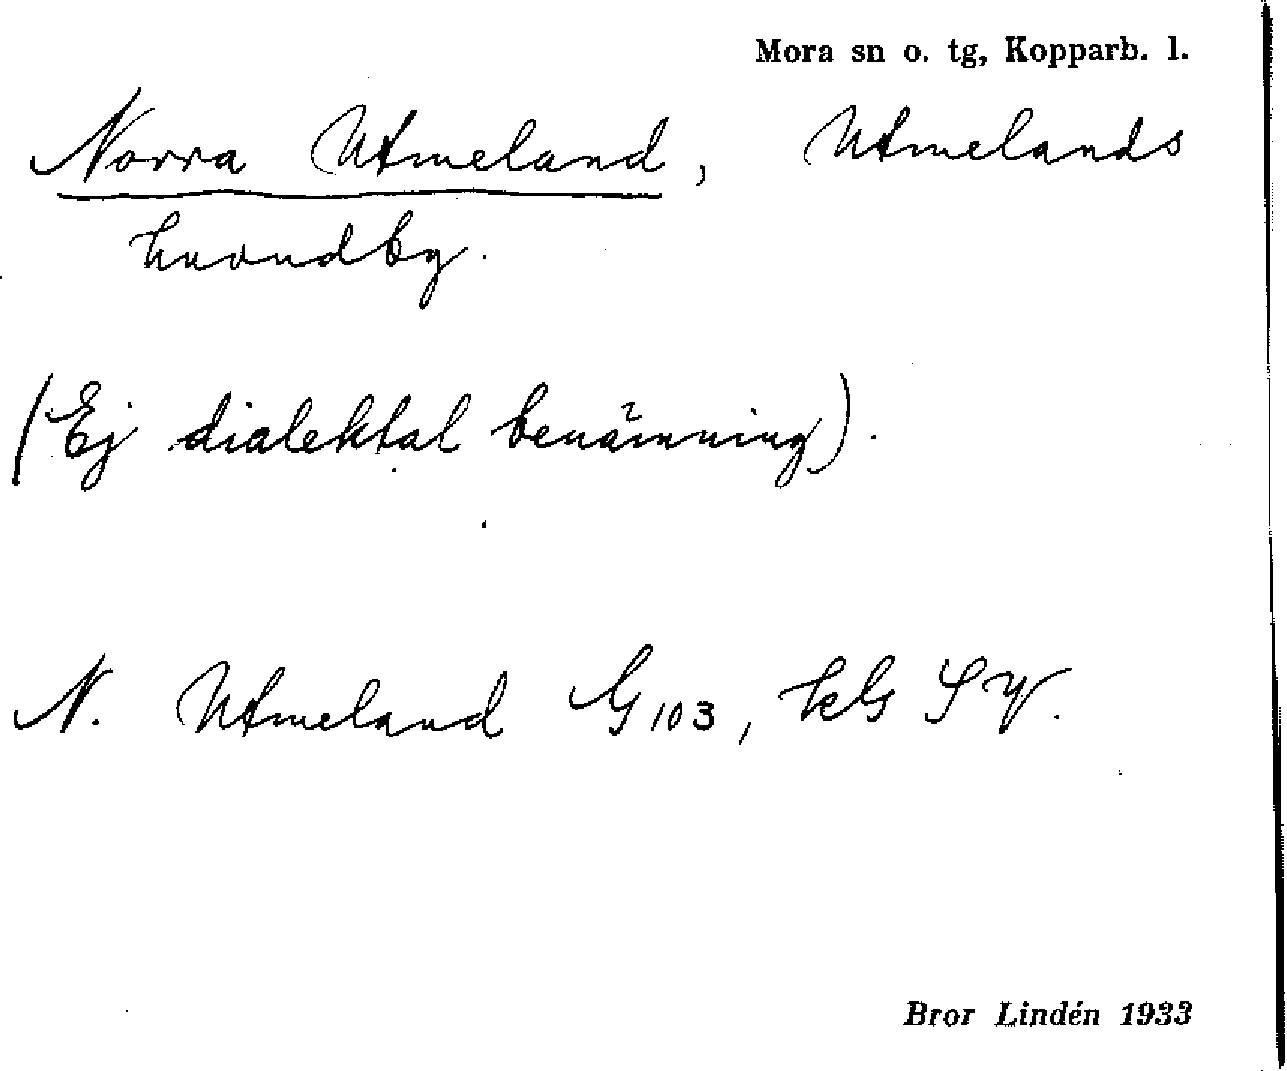 Mora sn o. tg, Kopparb. l.
Norra Utmeland, Utmelands
huvudby.
(Ej dialektal benämning).
N. Utmeland G 103, kbl SV.
Bror Lindén 1933